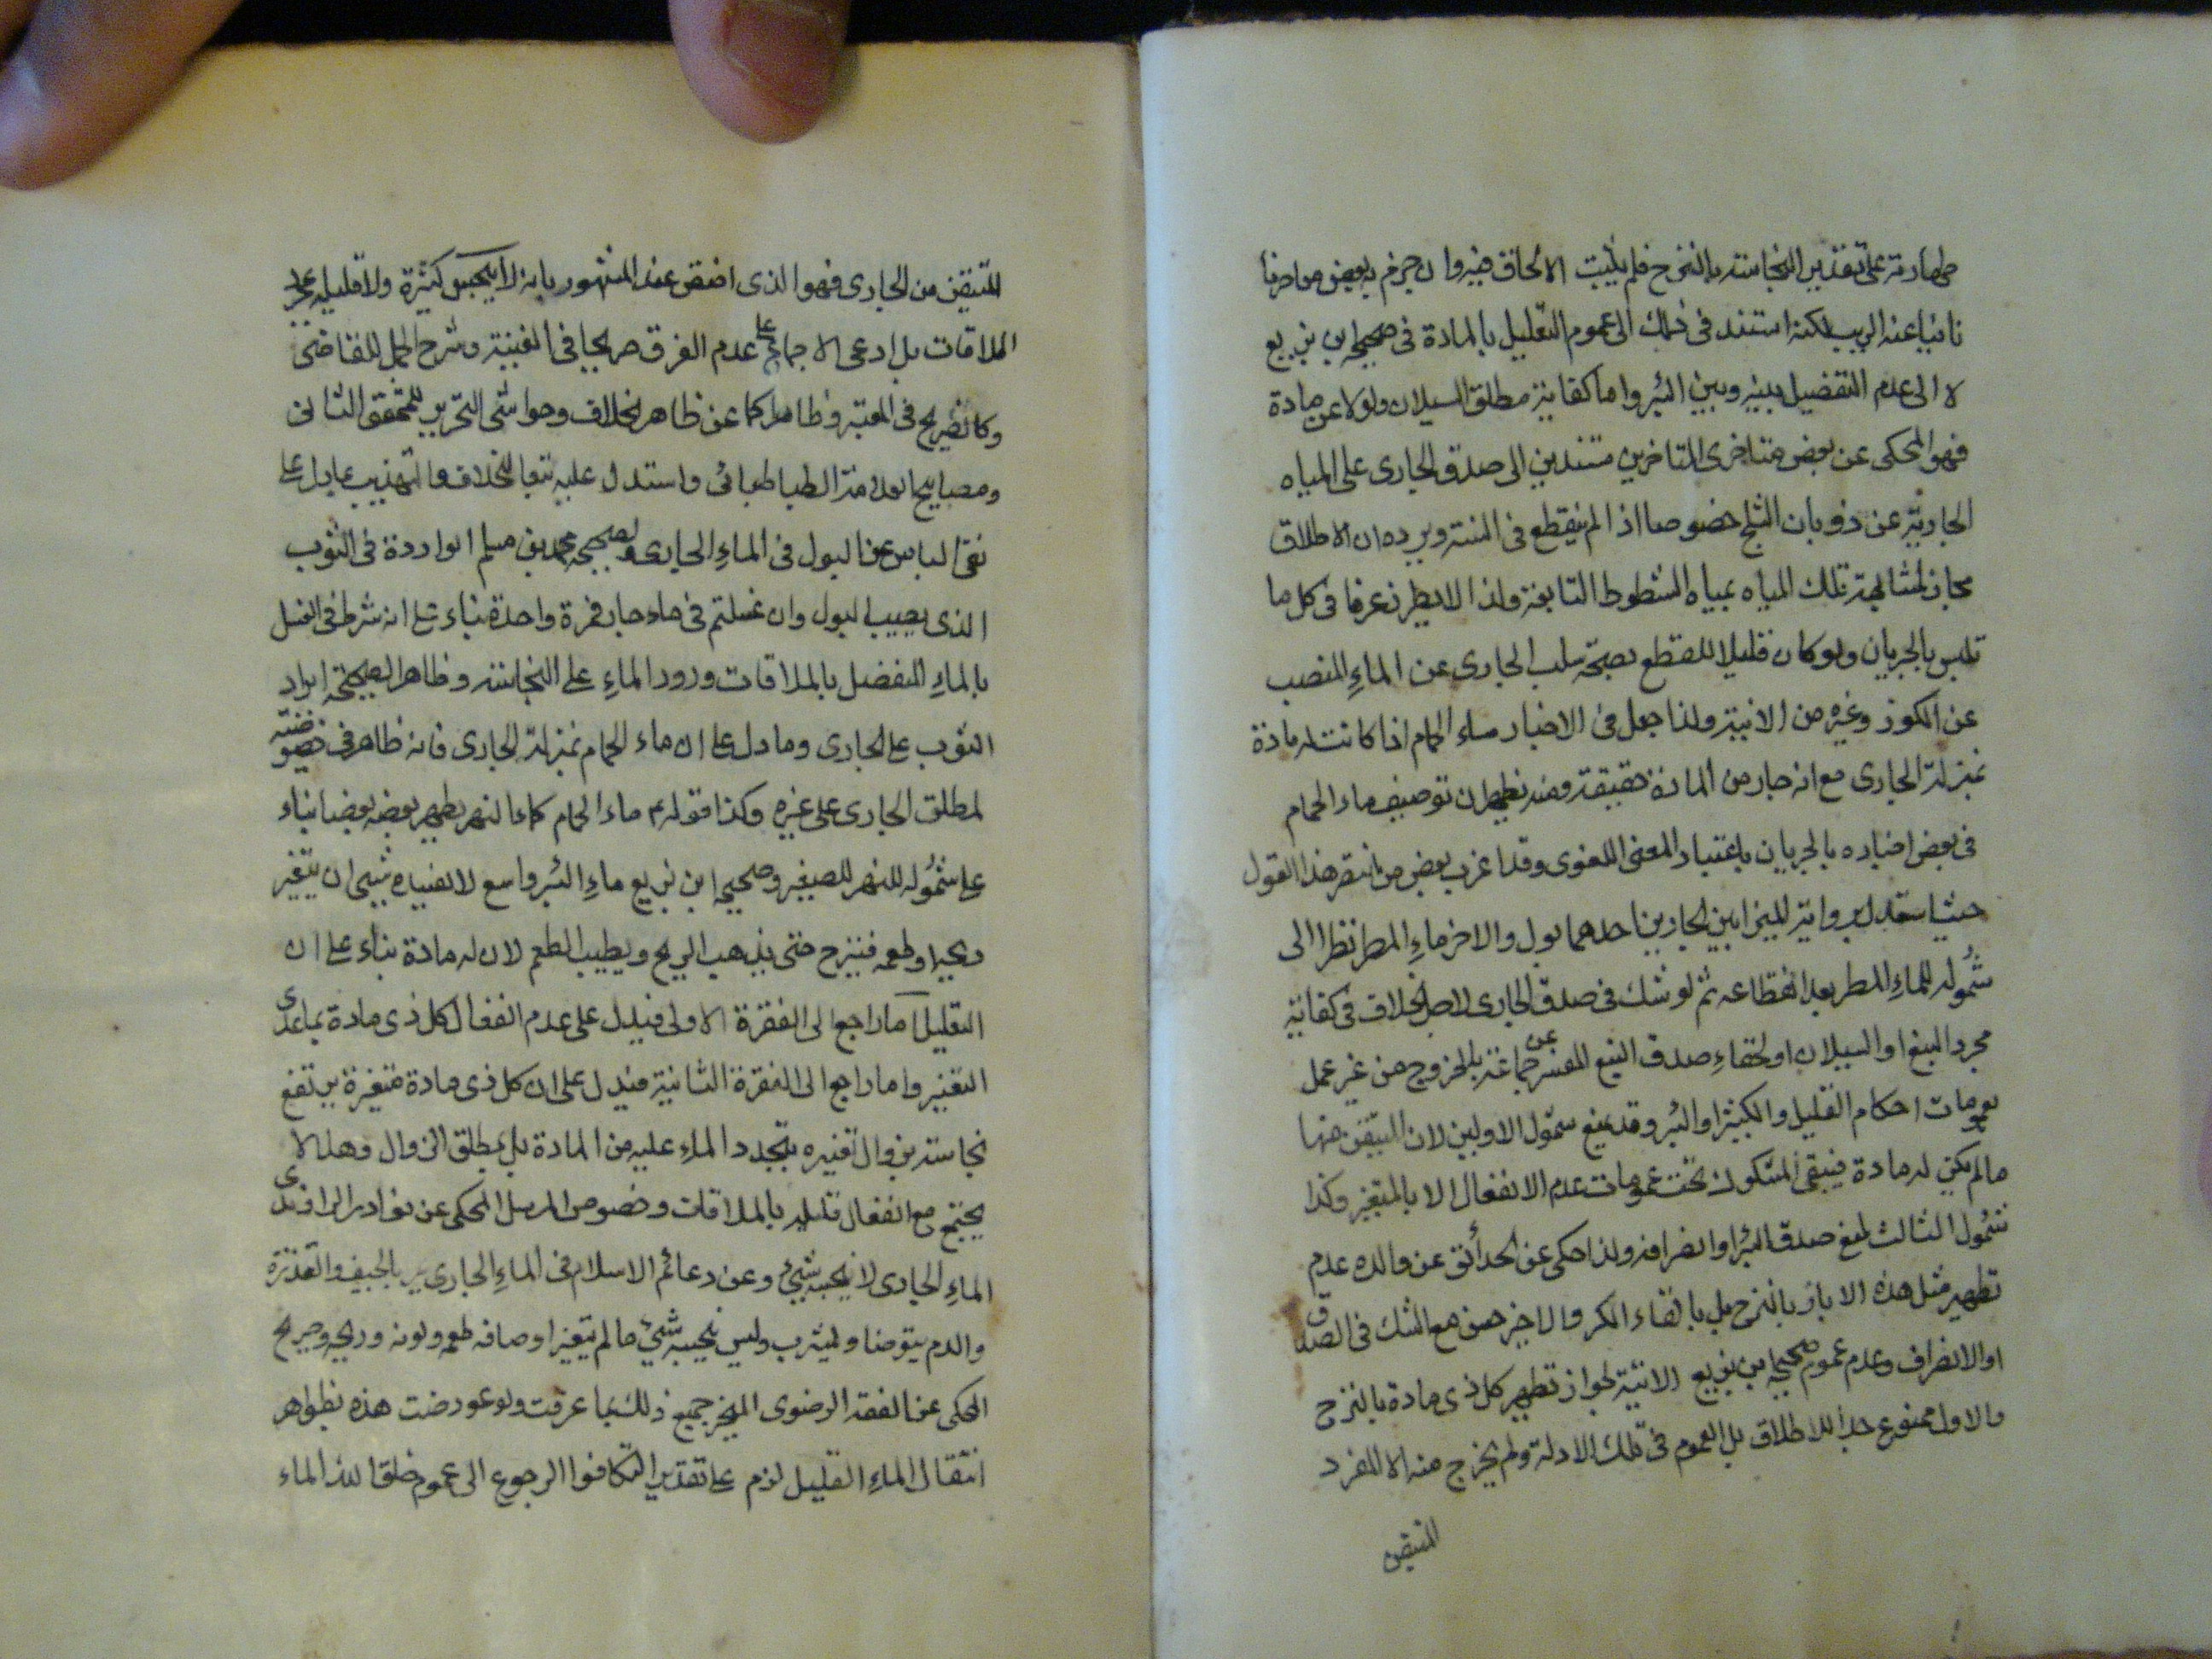 طهارته على تقدير النجاسته بالنزح فلم يثبت الالحاق فيه وان جزم به بعض معاصرينا
نافيا عنه الريب لكنه استند في ذلك الى عموم التعليل بالمادة في صحيحه ابن بزيع
لا الى عدم التفصيل بينه وبين البئر واما كفاية مطلق السيلان ولو لا عن مادة
فهو المحكى عن بعض متاخرى المتاخرين مستندين الى صدق الجارى على المياه
الجارية عن ذوبان الثلج خصوصا اذا لم ينقطع في السنة ويرده ان الاطلاق
مجاز لمشابهة تلك المياه بمياه الشطوط النابعة ولذا لا يطرد عرفا في كل ما
تلبس بالجريان ولو كان قليلا للقطع بصحة سلب الجارى عن الماء المنصب
عن الكوز وغيره من الانية ولذا جعل في الاخبار ماء الحمام اذا كانت له مادة
بمنزلة الجارى مع انه جار من المادة حقيقة ومنه يظهر ان توصيف ماء الحمام
في بعض اخباره بالجريان باعتبار المعنى اللغوى وقد اغرب بعض من انتصر هذا القول
حيث استدل برواية الميزابين الجاريين احدهما بول والاخر ماء المطر نظرا الى
شموله للماء المطر بعد انقطاعه ثم لو شك في صدق الجارى لاجل الخلاف في كفاية
مجرد النبع او السيلان او لخفاء صدق النبع المفسر عن جماعة بالخروج من غير عمل
بعمومات احكام القليل والكثير او البئر وقد يمنع شمول الاولين لان المتيقن منها
ما لم يكن له مادة فيبقى المشكوك تحت عمومات عدم الانفعال الا بالتغير وكذا
شمول الثالث لمنع صدق البئر او انصرافه ولذا حكى عن الحدائق عن والده عدم
تطهير مثل هذه الابار بالنزح بل بالقاء الكر والاخير حسن مع الشك في الصدق
او الانصراف وعدم عموم صحيحه ابن بزيع الاتية لجواز تطهير كل ذى مادة بالنزح
والاول ممنوع جدا للاطلاق بل العموم في تلك الادلة ولم يخرج منه الا الفرد
المتيقن
المتيقن من الجارى فهو الذى اتفق عند المشهور بانه لا ينجس كثيره ولا قليله بمجرد
الملاقات بل ادعى الاجماع على عدم الفرق صريحا في الغنية وشرح الجمل للقاضى
وكالصريح في المعتبر وظاهرا كما عن ظاهر الخلاف وحواشى التحرير للمحقق الثانى
ومصابيح العلامة الطباطبائى واستدل عليه تبعا للخلاف والتهذيب بما دل على
نفى الباس عن البول في الماء الجارى وبصحيحه محمد بن مسلم الواردة في الثوب
الذى يصيبه البول وان غسلته في ماء جار فمرة واحدة بناء على انه شرط في الغسل
بالماء المنفعل بالملاقات ورود الماء على النجاسة وظاهر الصحيحة ايراد
الثوب على الجارى وما دل على ان ماء الحمام بمنزلة الجارى فانه ظاهر في خصوصية
لمطلق الجارى على غيره وكذا قوله ع ماء الحمام كماء النهر يطهر بعضه بعضا بناء
على شموله للنهر الصغير وصحيحه ابن بزيع ماء البئر واسع لا يفسده شيئ الا ان يتغير
ريحه او طعمه فينزح حتى يذهب الريح ويطيب الطعم لان له مادة بناء على ان
التعليل اما راجع الى الفقرة الاولى فيدل على عدم انفعال كل ذى مادة بما عدى
التغير واما راجع الى الفقرة الثانية فيدل على ان كل ذى مادة متغيرة يرتفع
نجاسته بزوال تغيره بتجدد الماء عليه من المادة بل بمطلق الزوال وهذا لا
يجتمع مع انفعال قليله بالملاقات وخصوص المرسل المحكى عن نوادر الراوندى
الماء الجارى لا ينجسه شيئ وعن دعائم الاسلام في الماء الجارى يمر بالجيف والعذرة
والدم يتوضا ويشرب وليس ينجسه شيئ ما لم يتغير اوصافه طعمه ولونه وريحه وصريح
المحكى عن الفقه الرضوى المنجبر جميع ذلك بما عرفت ولو عورضت هذه بظواهر
انفعال الماء القليل لزم على تقدير التكافوا الرجوع الى عموم خلق الله الماء